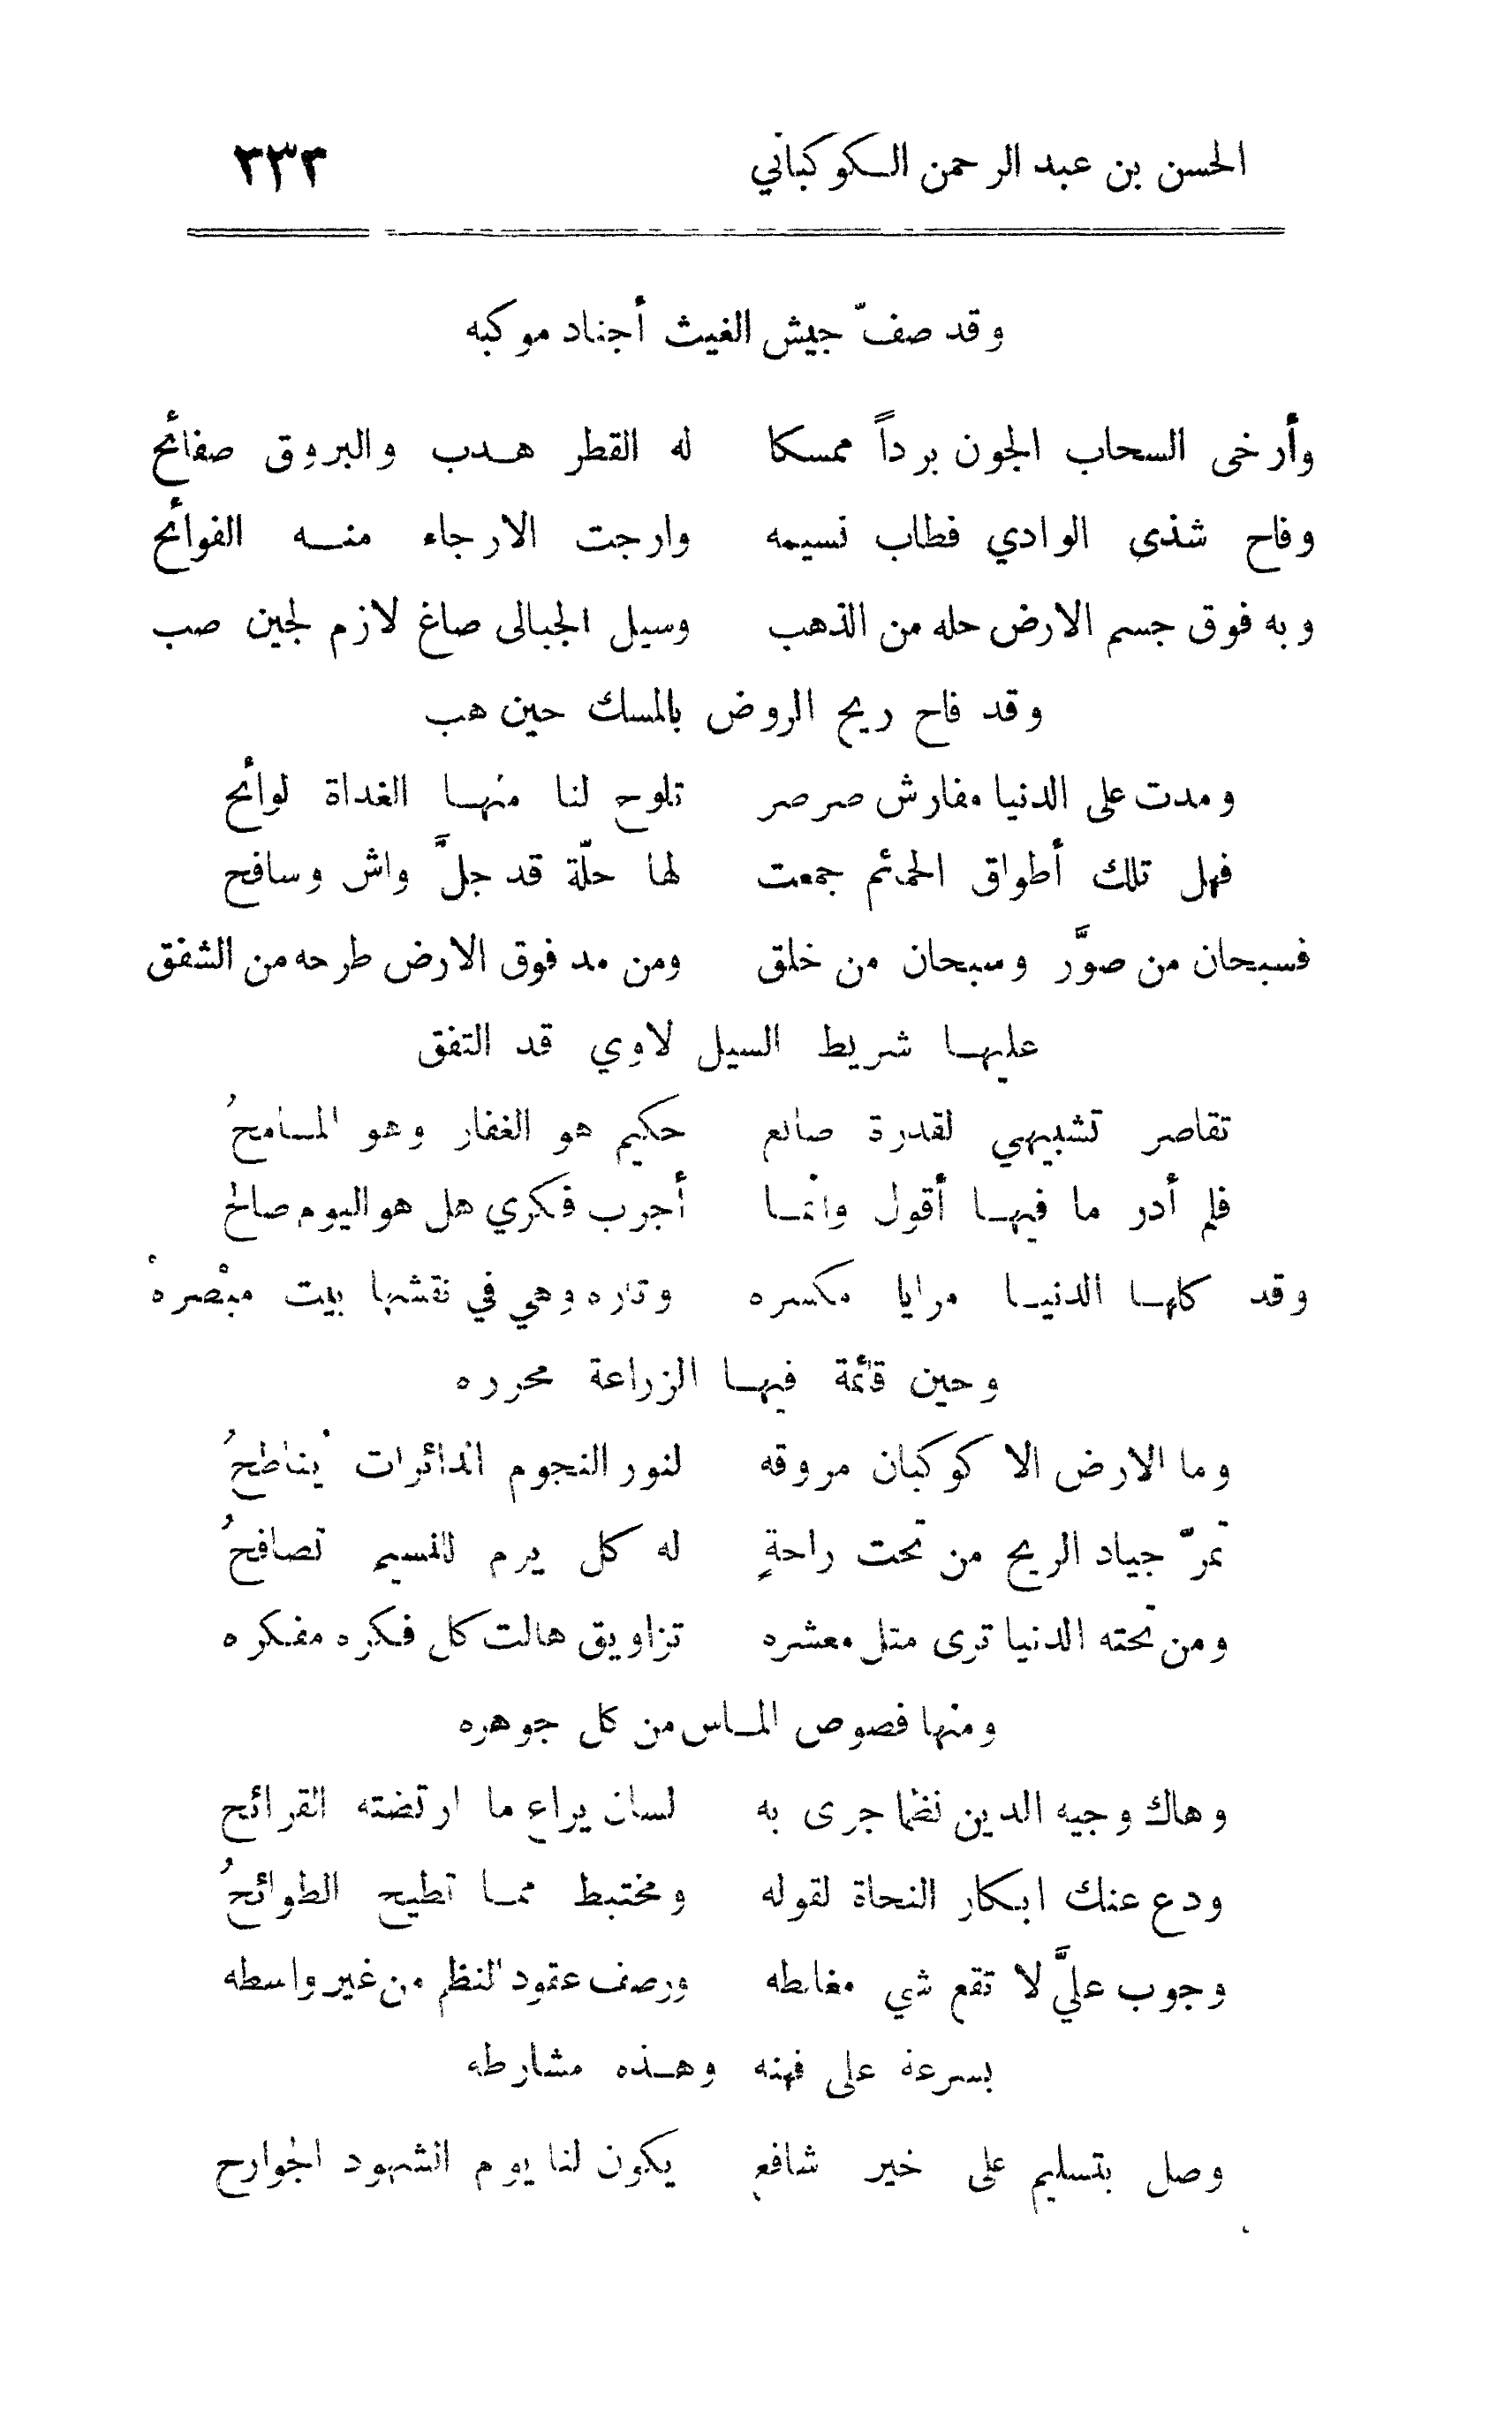 الحسن بن عبد الرحمن الكوكباني ٣٣٣
وقد صفّ جيش الغيث أجناد موكبه
وأرخى السحاب الجون برداً ممسكا له القطر هدب والبروق صفائح
وفاح شذى الوادي فطاب نسيمه وارجت الارجاء منه الفوائح
وبه فوق جسم الارض حله من الذهب وسيل الجبالى صاغ لازم لجين صب
وقد فاح ريح الروض بالمسك حين هب
ومدت على الدنيا مفارش صرصر تلوح لنا منها الغداة لوائح
فهل تلك أطواق الحمائم جمعت لها حلّة قد جلَّ واش وسافح
فسبحان من صوَّر وسبحان من خلق ومن مد فوق الارض طرحه من الشفق
عليها شريط السيل لاوي قد التفق
تقاصر تشبيهي لقدرة صانع حكيم هو الغفار وهو المسامحُ
فلم أدر ما فيها أقول وانما أجرب فكري هل هو اليوم صالح
وقد كلها الدنيا مرايا مكسره وتاره وهي في نقشها بيت مبْصره
وحين قائمة فيها الزراعة محرره
وما الارض الا كوكبان مروقه لنور النجوم الدائرات يناطحُ
تمرّ جياد الريح من تحت راحةٍ له كل يرم للنسيم تصافحُ
ومن تحته الدنيا ترى متل معشره تزاويق هالت كل فكره مفكره
ومنها فصوص الماس من كل جوهره
وهاك وجيه الدين نظما جرى به لسان يراع ما ارتضته القرائح
ودع عنك ابكار النحاة لقوله ومختبط مما تطيح الطوائحُ
وجوب عليَّ لا تقع شي مغالطه ورصف عقود النظم من غير واسطه
بسرعة على فهنه وهذه مشارطه
وصل بتسليم على خير شافع يكون لنا يوم الشهود الجوارح